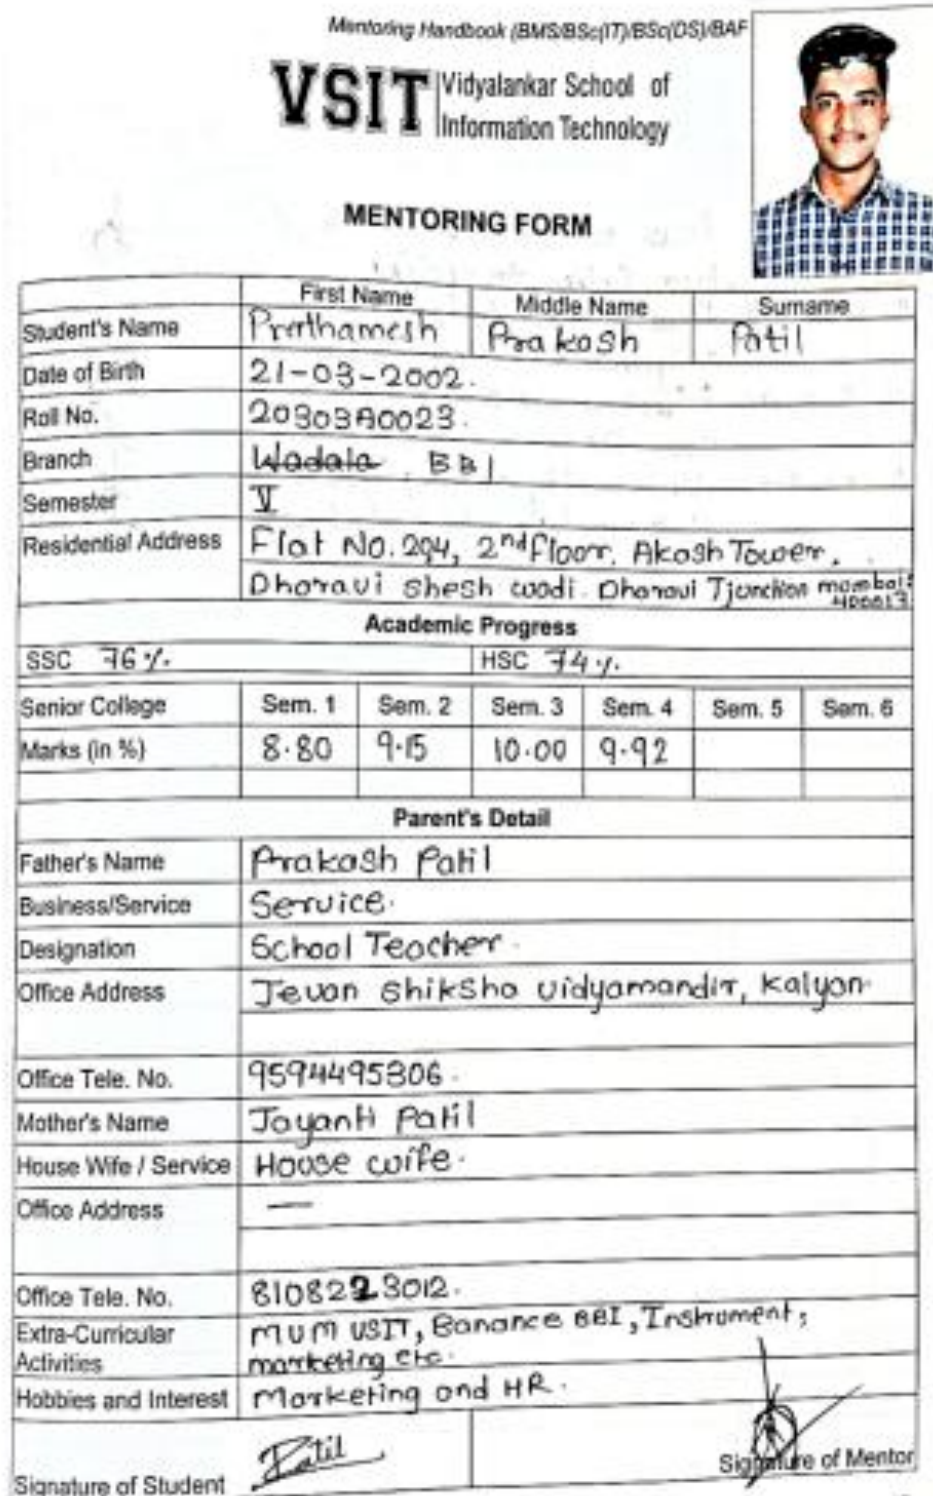 Mentoring Handbook (BMS/BSc(IT)/BSc(DS)/BAF
VSIT Vidyalankar School of
Information Technology
MENTORING FORM
First Name Middle Name Surname
Student's Name Prathamesh Prakash Patil
Date of Birth 21-03-2002.
Roll No. 20303A0023.
Branch Wadala BBI
Semester V
Residential Address Flat No. 204, 2nd floor, Akash Tower,
Dharavi Shesh wadi. Dharavi T junction mumbai:
400017
Academic Progress
SSC 76 % HSC 74 %.
Senior College Sem. 1 Sem. 2 Sem. 3 Sem. 4 Sem. 5 Sem. 6
Marks (in %) 8.80 9.15 10.00 9.92
Parent's Detail
Father's Name Prakash Patil
Business/Service Service.
Designation School Teacher.
Office Address Jevan Shiksha vidyamandir, Kalyan.
Office Tele. No. 9594495306.
Mother's Name Jayanti Patil
House Wife / Service House wife.
Office Address —
Office Tele. No. 8108223012.
Extra-Curricular MUM VSIT, Banance BBI, Instrument,
Activities marketing etc.
Hobbies and Interest Marketing and HR.
Signature of Student Patil Signature of Mentor